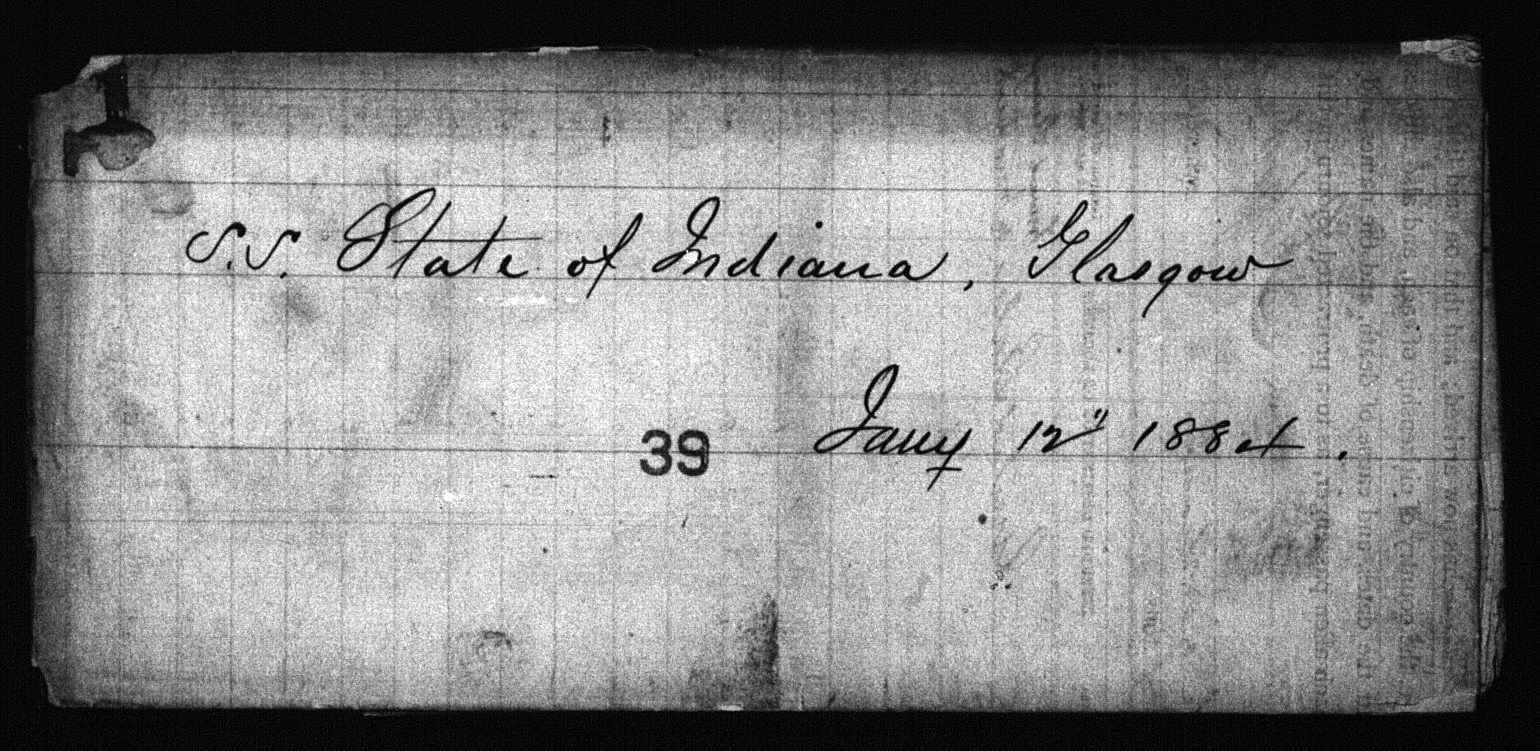 S.S. State of Indiana, Glasgow
39 Jany 12" 1884.